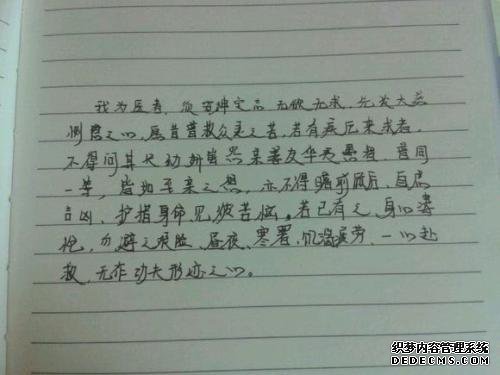 我为医者,须安神定志,无欲无求,先发大慈
恻隐之心,愿普救众灵之苦,若有疾厄来求者,
不得问其长幼妍蚩怨亲善友华夷愚智,普同
一等,皆如至亲之想,亦不得瞻前顾后,自虑
吉凶、护惜身命见彼苦恼。若已有之,身心凄
怆,勿避之艰险、昼夜、寒暑、饥渴疲劳,一心赴
救,无作功夫形迹之心。
织梦内容管理系统
DEDECMS.COM